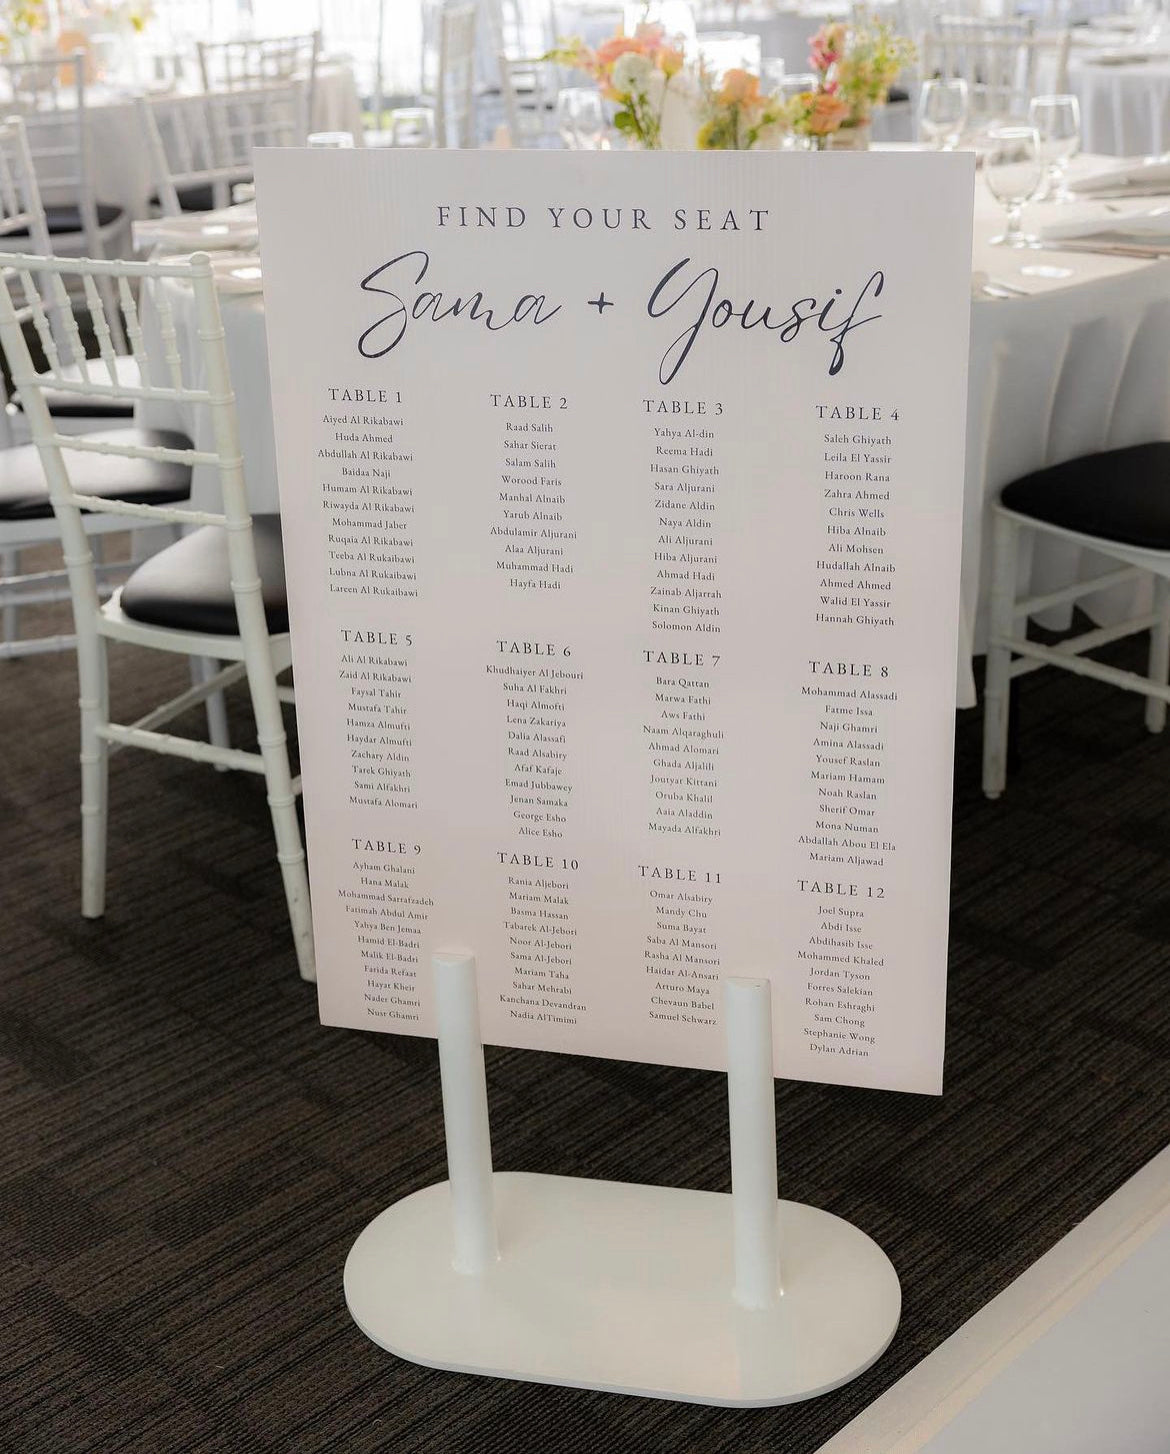 FIND YOUR SEAT
Sama + Yousif
TABLE 1
Aiyed Al Rikabawi
Huda Ahmed
Abdullah Al Rikabawi
Baidaa Naji
Humam Al Rikabawi
Riwayda Al Rikabawi
Mohammad Jaber
Ruqaia Al Rikabawi
Teeba Al Rukaibawi
Lubna Al Rukaibawi
Lareen Al Rukaibawi
TABLE 2
Raad Salih
Sahar Sierat
Salam Salih
Worood Faris
Manhal Alnaib
Yarub Alnaib
Abdulamir Aljurani
Alaa Aljurani
Muhammad Hadi
Hayfa Hadi
TABLE 3
Yahya Al-din
Reema Hadi
Hasan Ghiyath
Sara Aljurani
Zidane Aldin
Naya Aldin
Ali Aljurani
Hiba Aljurani
Ahmad Hadi
Zainab Aljarrah
Kinan Ghiyath
Solomon Aldin
TABLE 4
Saleh Ghiyath
Leila El Yassir
Haroon Rana
Zahra Ahmed
Chris Wells
Hiba Alnaib
Ali Mohsen
Hudallah Alnaib
Ahmed Ahmed
Walid El Yassir
Hannah Ghiyath
TABLE 5
Ali Al Rikabawi
Zaid Al Rikabawi
Faysal Tahir
Mustafa Tahir
Hamza Almufti
Haydar Almufti
Zachary Aldin
Tarek Ghiyath
Sami Alfakhri
Mustafa Alomari
TABLE 6
Khudhaiyer Al Jebouri
Suha Al Fakhri
Haqi Almofti
Lena Zakariya
Dalia Alassafi
Raad Alsabiry
Afaf Kafaje
Emad Jubbawey
Jenan Samaka
George Esho
Alice Esho
TABLE 7
Bara Qattan
Marwa Fathi
Aws Fathi
Naam Alqaraghuli
Ahmad Alomari
Ghada Aljalili
Joutyar Kittani
Oruba Khalil
Aaia Aladdin
Mayada Alfakhri
TABLE 8
Mohammad Alassadi
Fatme Issa
Naji Ghamri
Amina Alassadi
Yousef Raslan
Mariam Hamam
Noah Raslan
Sherif Omar
Mona Numan
Abdallah Abou El Ela
Mariam Aljawad
TABLE 9
Ayham Ghalani
Hana Malak
Mohammad Sarrafzadeh
Fatimah Abdul Amir
Yahya Ben Jemaa
Hamid El-Badri
Malik El-Badri
Farida Refaat
Hayat Kheir
Nader Ghamri
Nusr Ghamri
TABLE 10
Rania Aljebori
Mariam Malak
Basma Hassan
Tabarek Al-Jebori
Noor Al-Jebori
Sama Al-Jebori
Mariam Taha
Sahar Mehrabi
Kanchana Devandran
Nadia AlTimimi
TABLE 11
Omar Alsabiry
Mandy Chu
Suma Bayat
Saba Al Mansori
Rasha Al Mansori
Haidar Al-Ansari
Arturo Maya
Chevaun Babel
Samuel Schwarz
TABLE 12
Joel Supra
Abdi Isse
Abdihasib Isse
Mohammed Khaled
Jordan Tyson
Forres Salekian
Rohan Eshraghi
Sam Chong
Stephanie Wong
Dylan Adrian